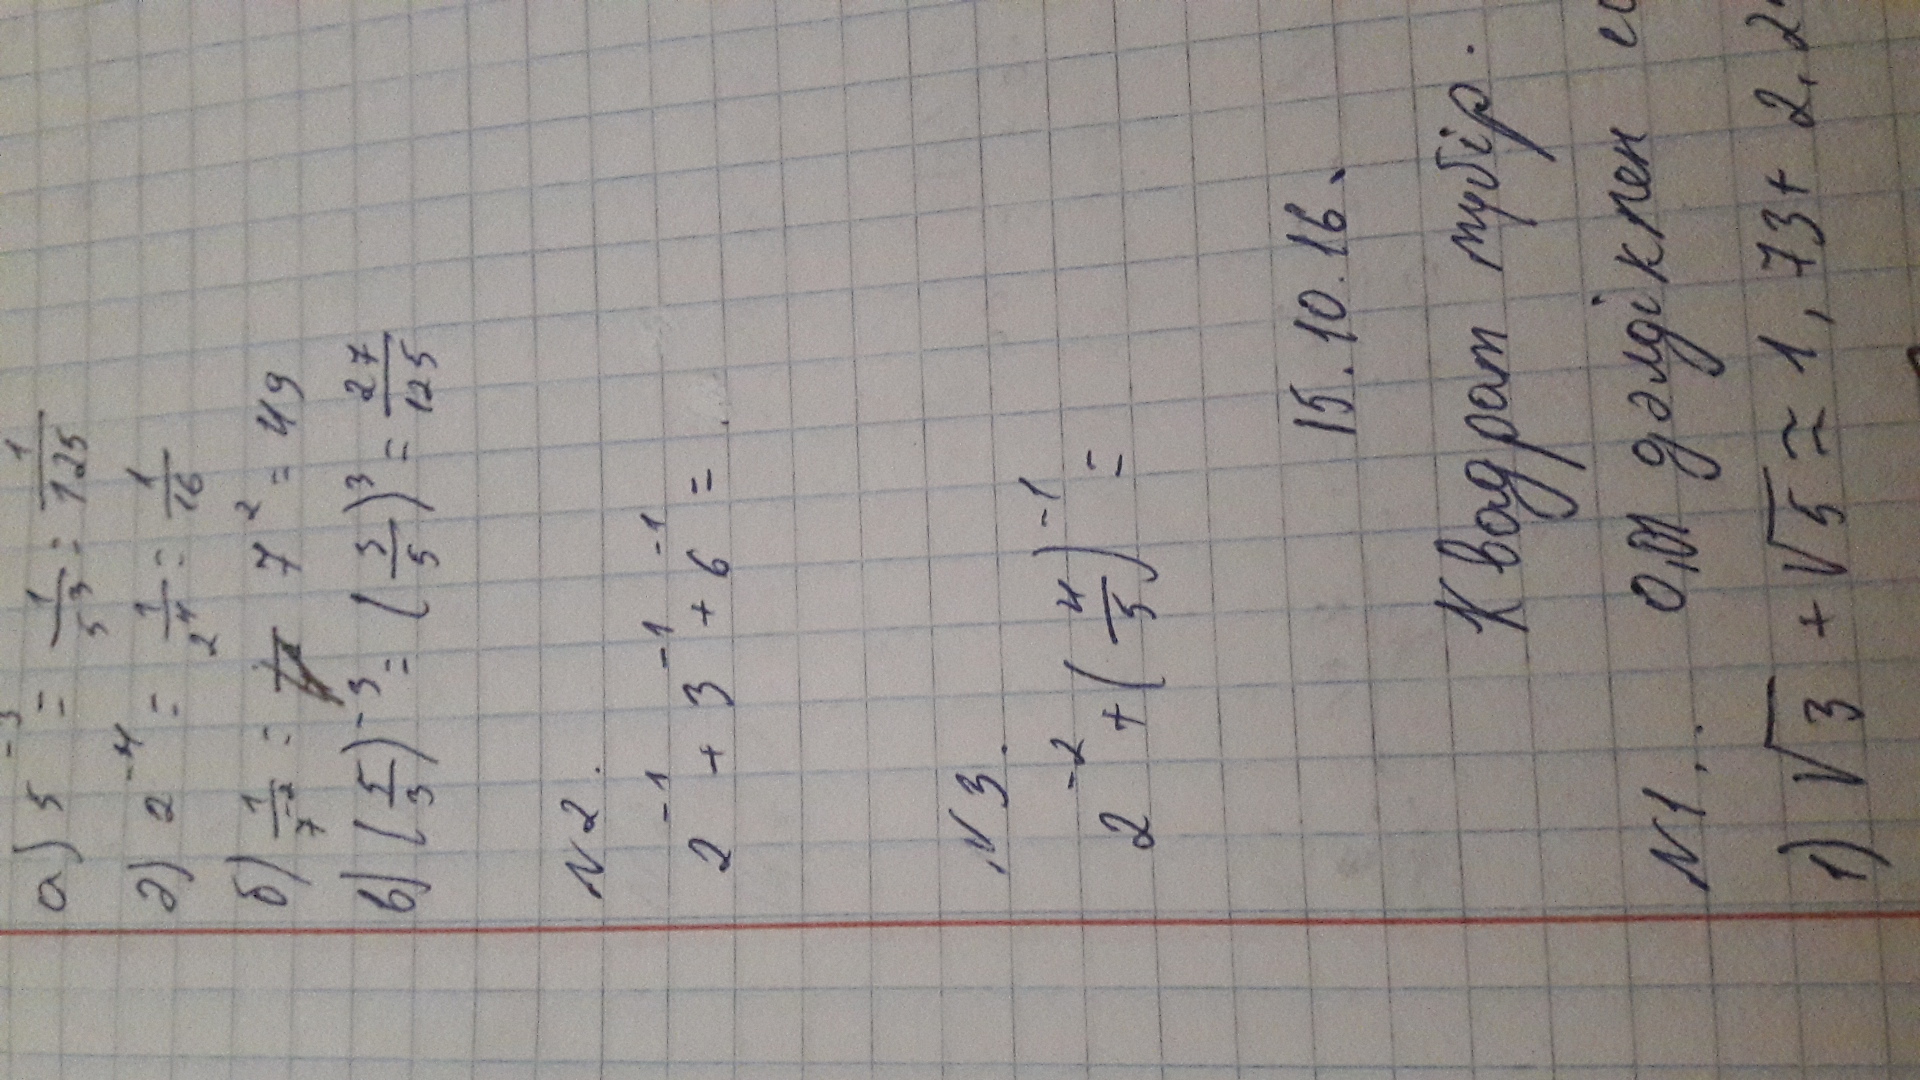 а) 5⁻³ = 1/5³ = 1/125
ә) 2⁻⁴ = 1/2⁴ = 1/16
б) 1/7⁻² = 7² = 49
в) (5/3)⁻³ = (3/5)³ = 27/125
N2.
2⁻¹ + 3⁻¹ + 6⁻¹ =
N3.
2⁻² + (4/5)⁻¹ =
15.10.16.
Квадрат түбір.
N1. 0,01 дәлдікпен
1) √3 + √5 ≃ 1,73+ 2,2